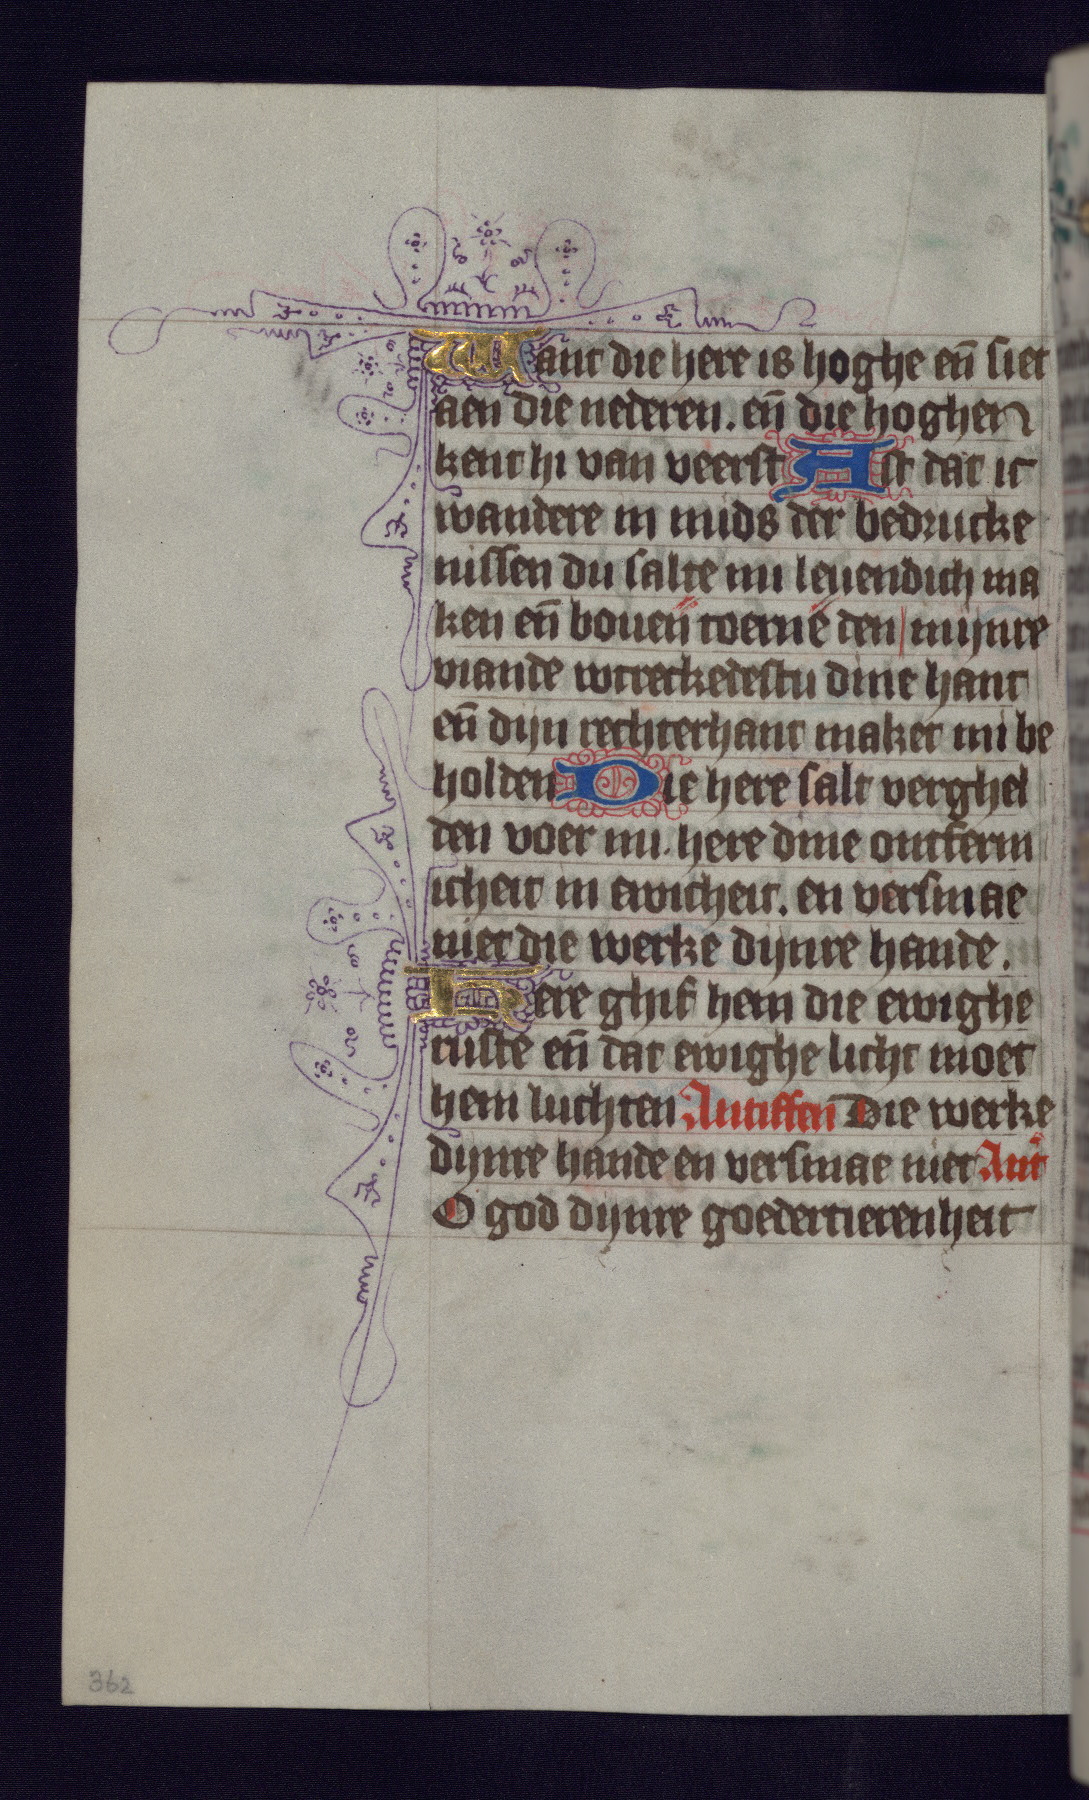 Want die here is hoghe en̄ siet
aen die nederen. en̄ die hoghen
kent hi van veerst Ist dat ic
wandere in mids der bedrucke
nissen du salte mi leuendich ma
ken en̄ bouen toerne den mijnre
viande wtreckedestu dine hant
en̄ dijn rechterhant maket mi be
holden Die here salt verghel
den voer mi. here dine ontferm
icheit in ewicheit. en versmae
niet die werke dijnre hande.
Here ghif hem die ewighe
ruste en̄ dat ewighe licht moet
hem luchten Antiffen Die werke
dijnre hande en versmae niet Ant
O god dijnre goedertierenheit
362